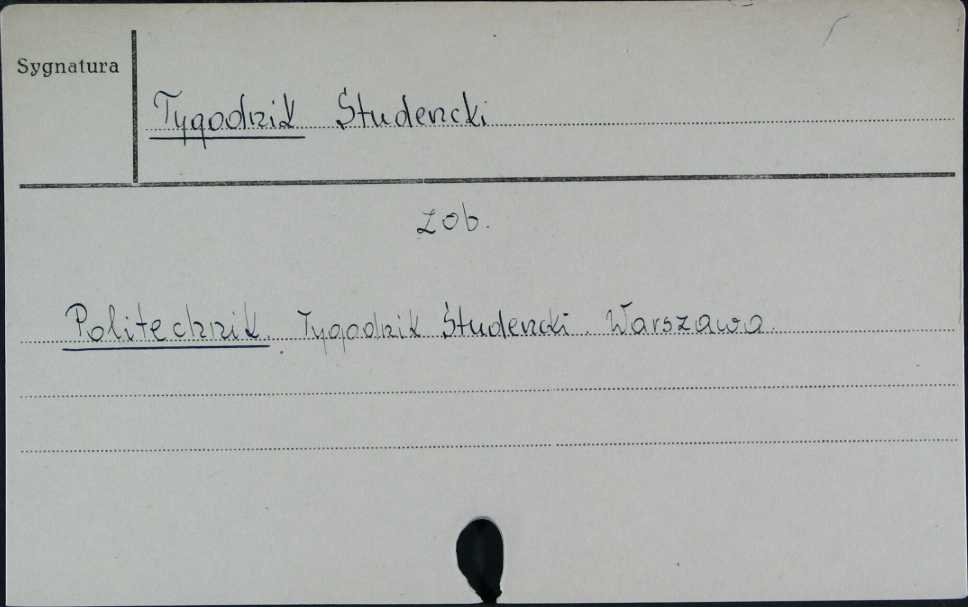 Sygnatura
Tygodnik Studencki
zob.
Politechnik. Tygodnik Studencki. Warszawa.